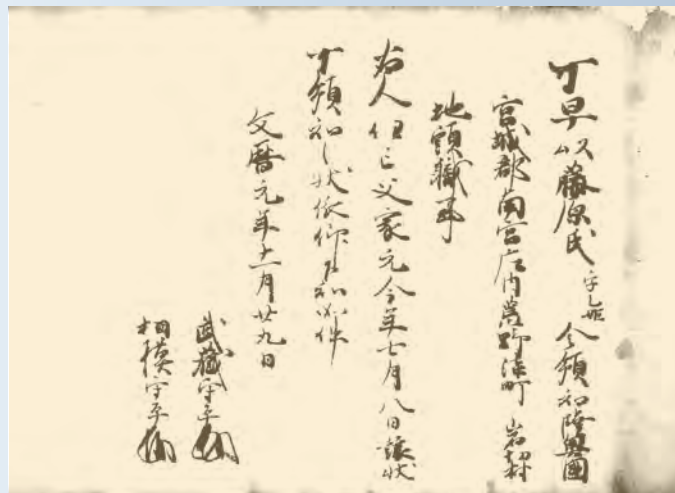 可早以藤原氏字乙姫令領知陸奥國
宮城郡南宮庄内荒野漆町岩切村
地頭職事
右人任亡父家元今年七月八日讓状
可領知之状依仰下知如件
文暦元年十一月廿九日
武藏守平
相模守平